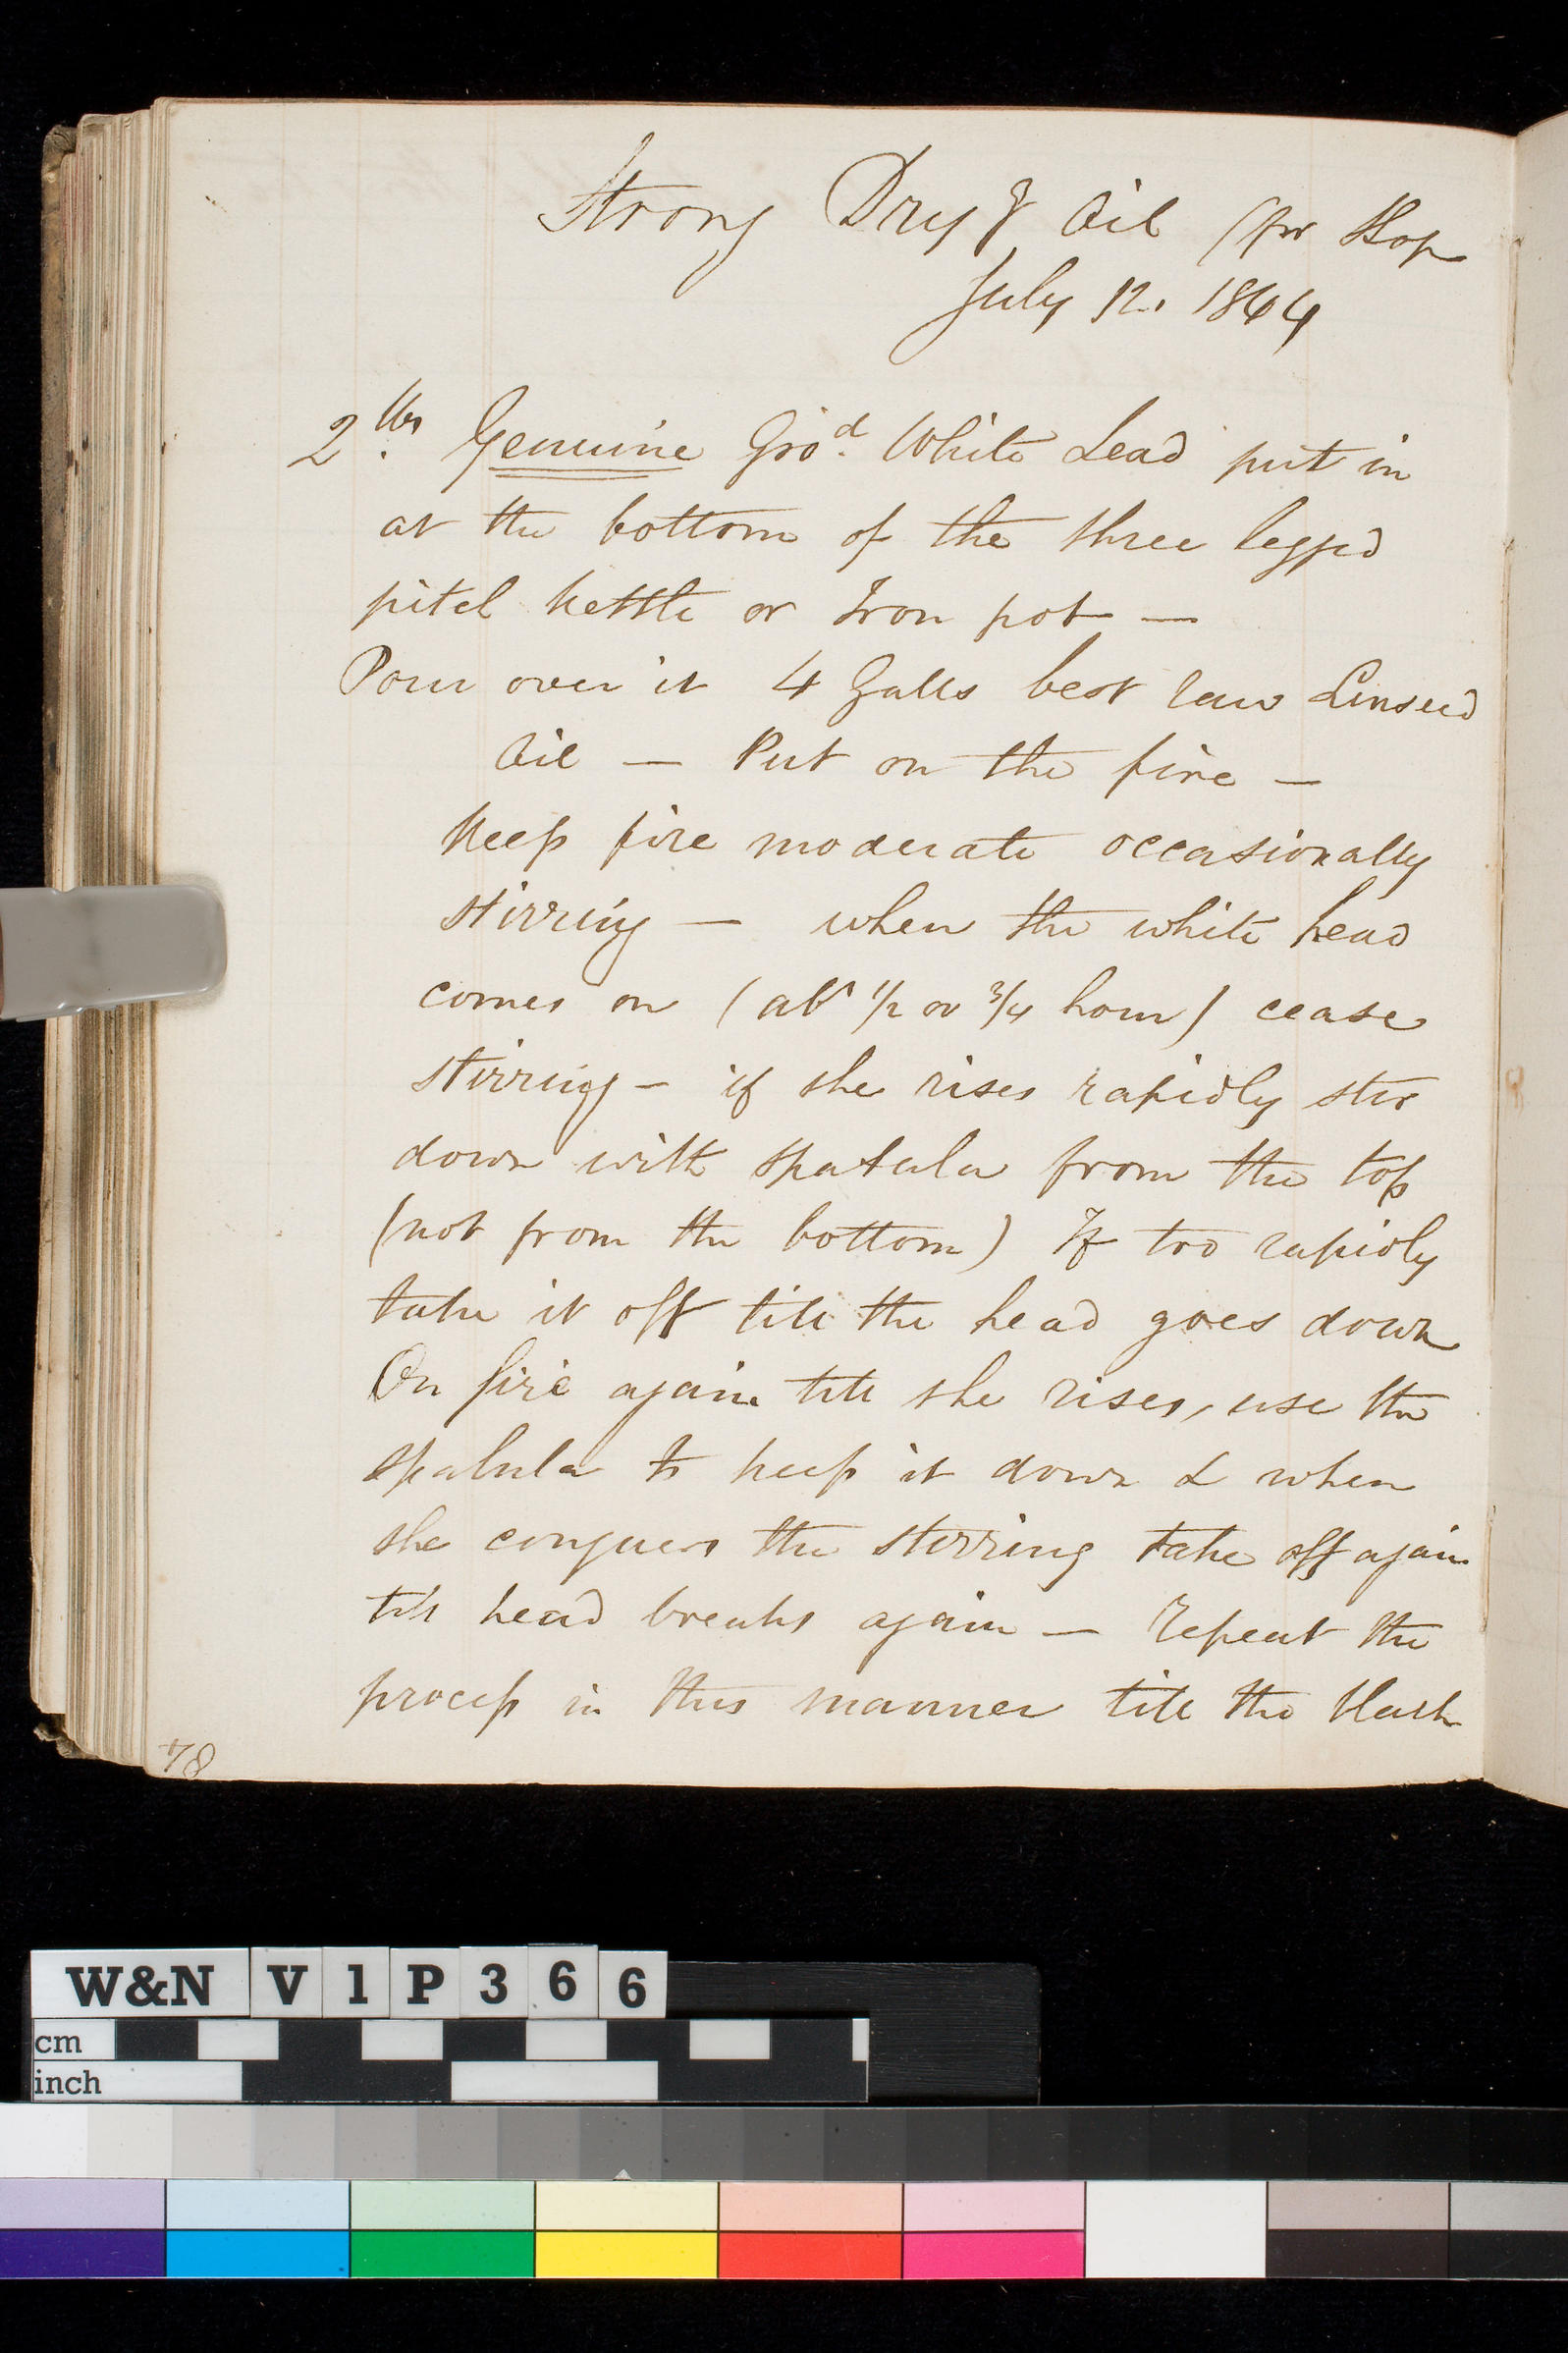 Strong Dryg Oil (for Shop
July 12. 1844
2 lbs. Genuine Gro.d White Lead put in
at the bottom of the three legged
pitch kettle or Iron pot —
Pour over it 4 Galls best raw Linseed
Oil — Put on the fire —
Keep fire moderate occasionally
stirring — when the white head
comes on (abt 1/2 or 3/4 hour) cease
stirring — if she rises rapidly stir
down with spatula from the top
(not from the bottom) If too rapidly
take it off till the head goes down
On fire again till she rises, use the
spatula to keep it down & when
she conquers the stirring take off again
till head breaks again — Repeat the
process in this manner till the
78
W&N V1P366
cm
inch